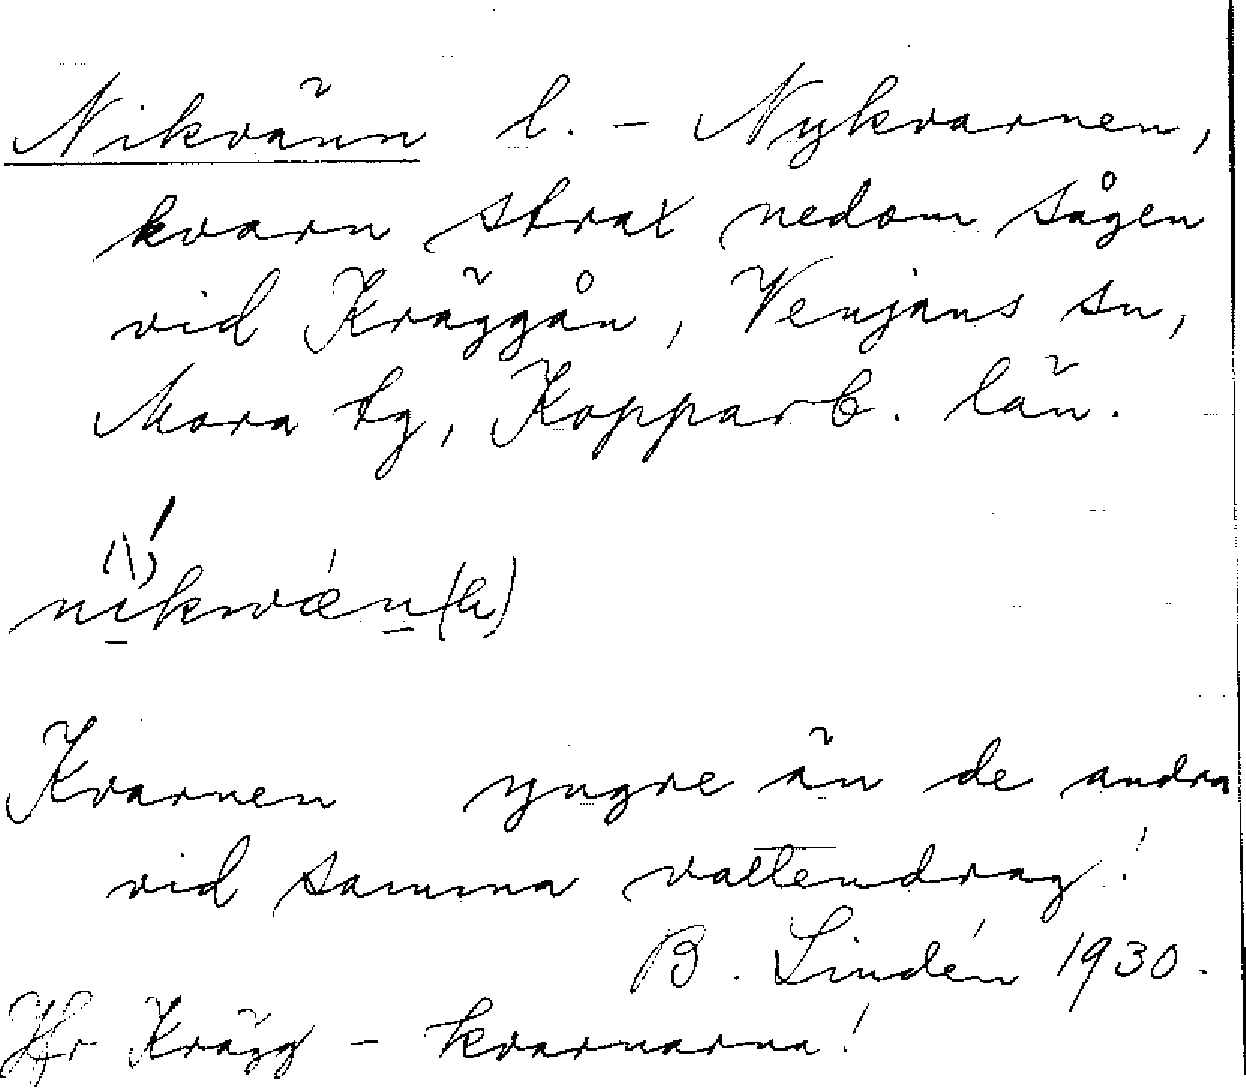 Nikvänn l. - Nykvarnen,
kvarn strax nedom sågen
vid Kräggån, Venjans sn,
Mora tg, Kopparb. län.
Kvarnen yngre än de andra
vid samma vattendrag!
B. Lindén 1930.
Jfr Krägg - kvarnarna!